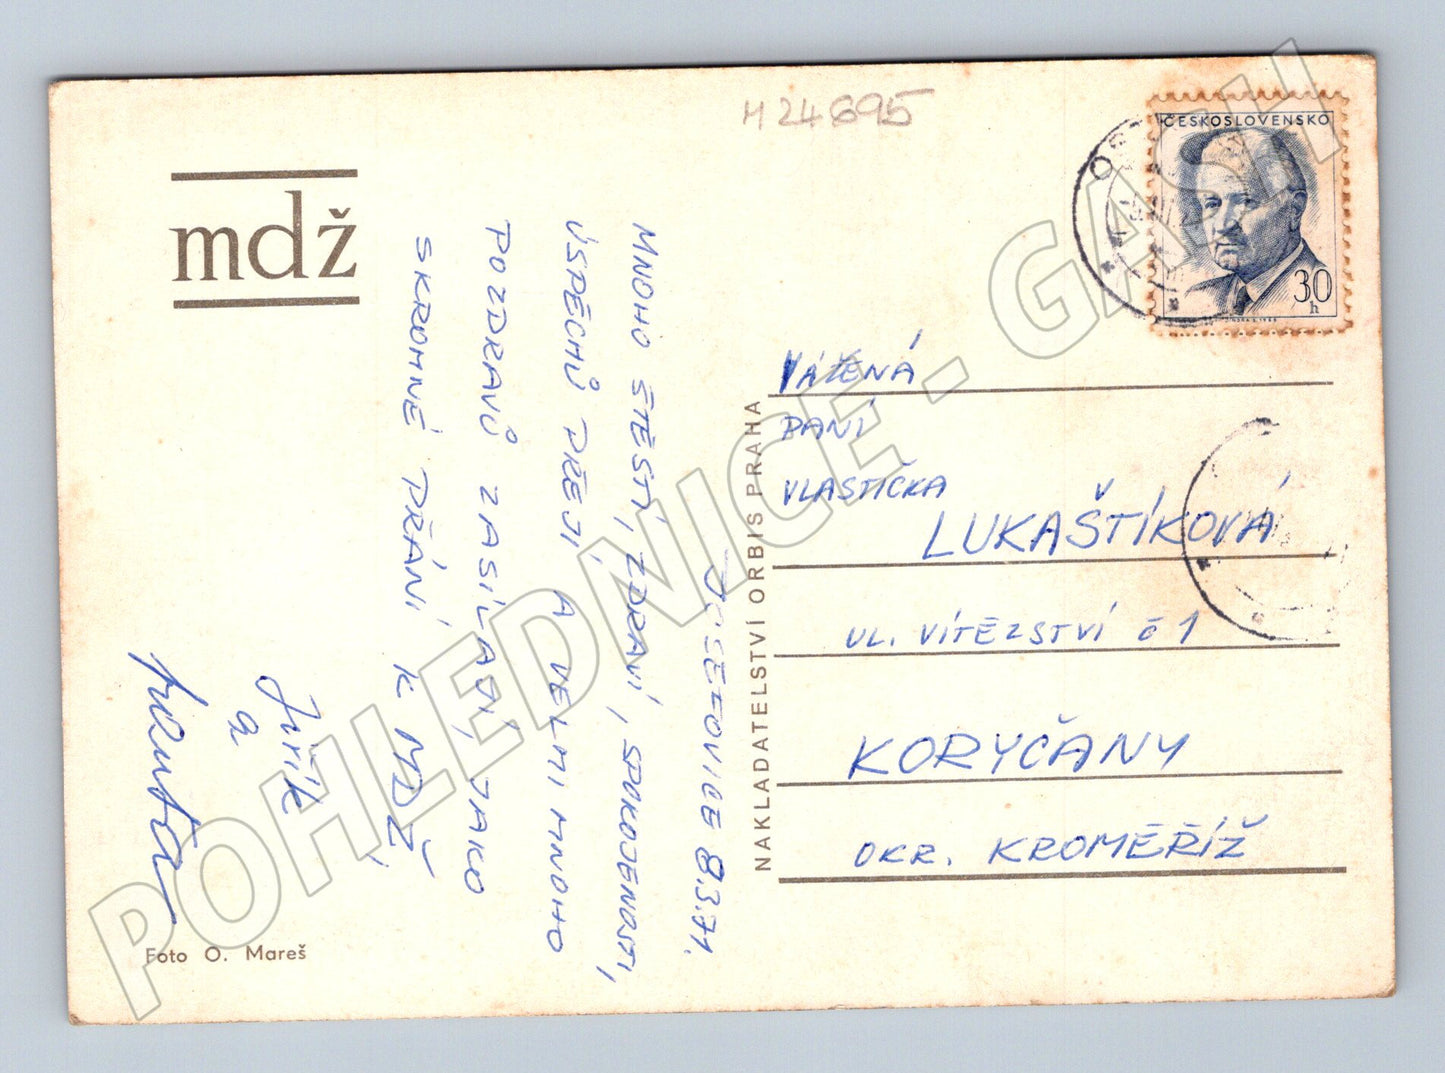 M 24695
mdž
JOSEFOVICE 8.3.71.
MNOHO ŠTĚSTÍ, ZDRAVÍ, SPOKOJENOSTI,
ÚSPĚCHŮ PŘEJI, A VELMI MNOHO
POZDRAVŮ ZASÍLAJÍ, JAKO
SKROMNÉ PŘÁNÍ K MDŽ
Jiřík
a
Foto O. Mareš
NAKLADATELSTVÍ ORBIS PRAHA
ČESKOSLOVENSKO
30
h
VÁŽENÁ
PANÍ
VLASTIČKA
LUKAŠTÍKOVÁ
UL. VÍTĚZSTVÍ č 1
KORYČANY
OKR. KROMĚŘÍŽ
POHLEDNICE - GASH